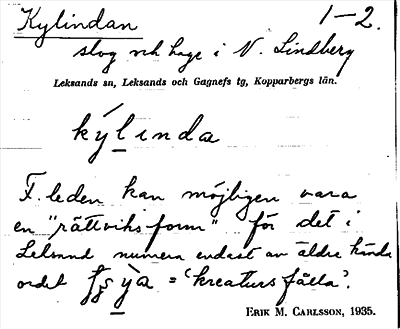 Kylindan 1-2.
skog och hage i N. Lindberg
Leksands sn, Leksands och Gagnefs tg, Kopparbergs län.
kýlında
F. leden kan möjligen vara
en "rättviksform" för det i
Leksand numera endast av äldre kända
ordet = 'kreatursfålla'.
ERIK M. CARLSSON, 1935.